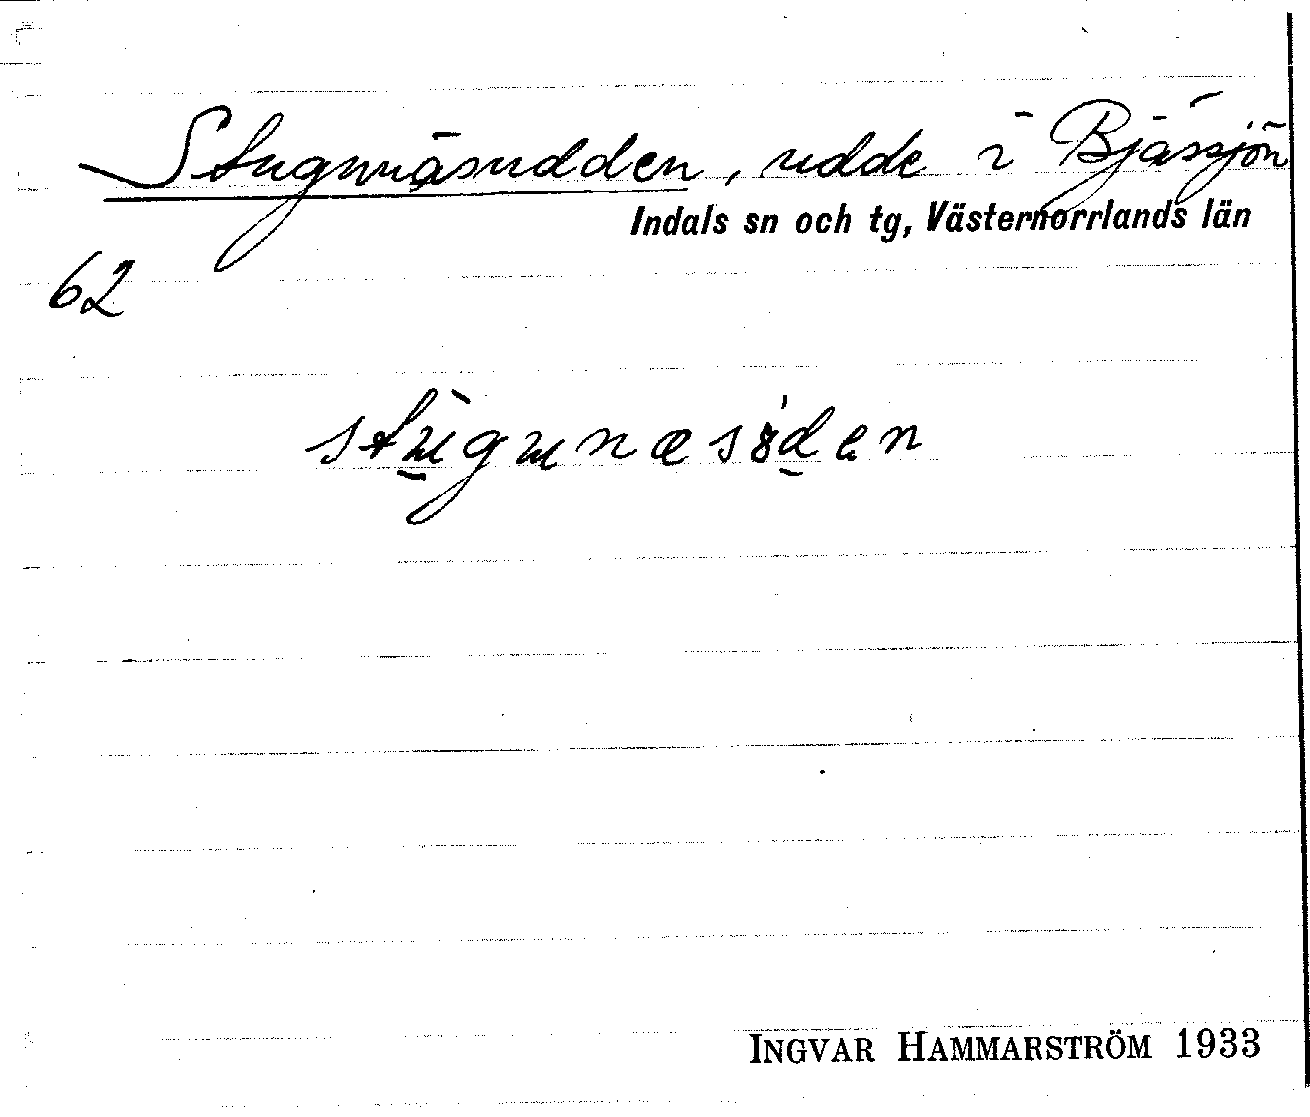 Stugunäsudden, udde i Bjässjön
Indals sn och tg, Västernorrlands län
62
INGVAR HAMMARSTRÖM 1933